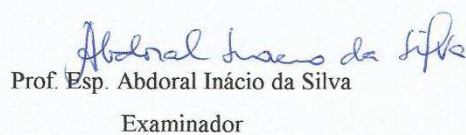 Abdoral Inacio da Silva
Prof. Esp. Abdoral Inácio da Silva
Examinador